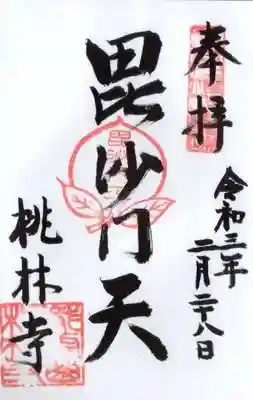 奉拝
令和三年
二月二十八日
毘沙門天
桃林寺